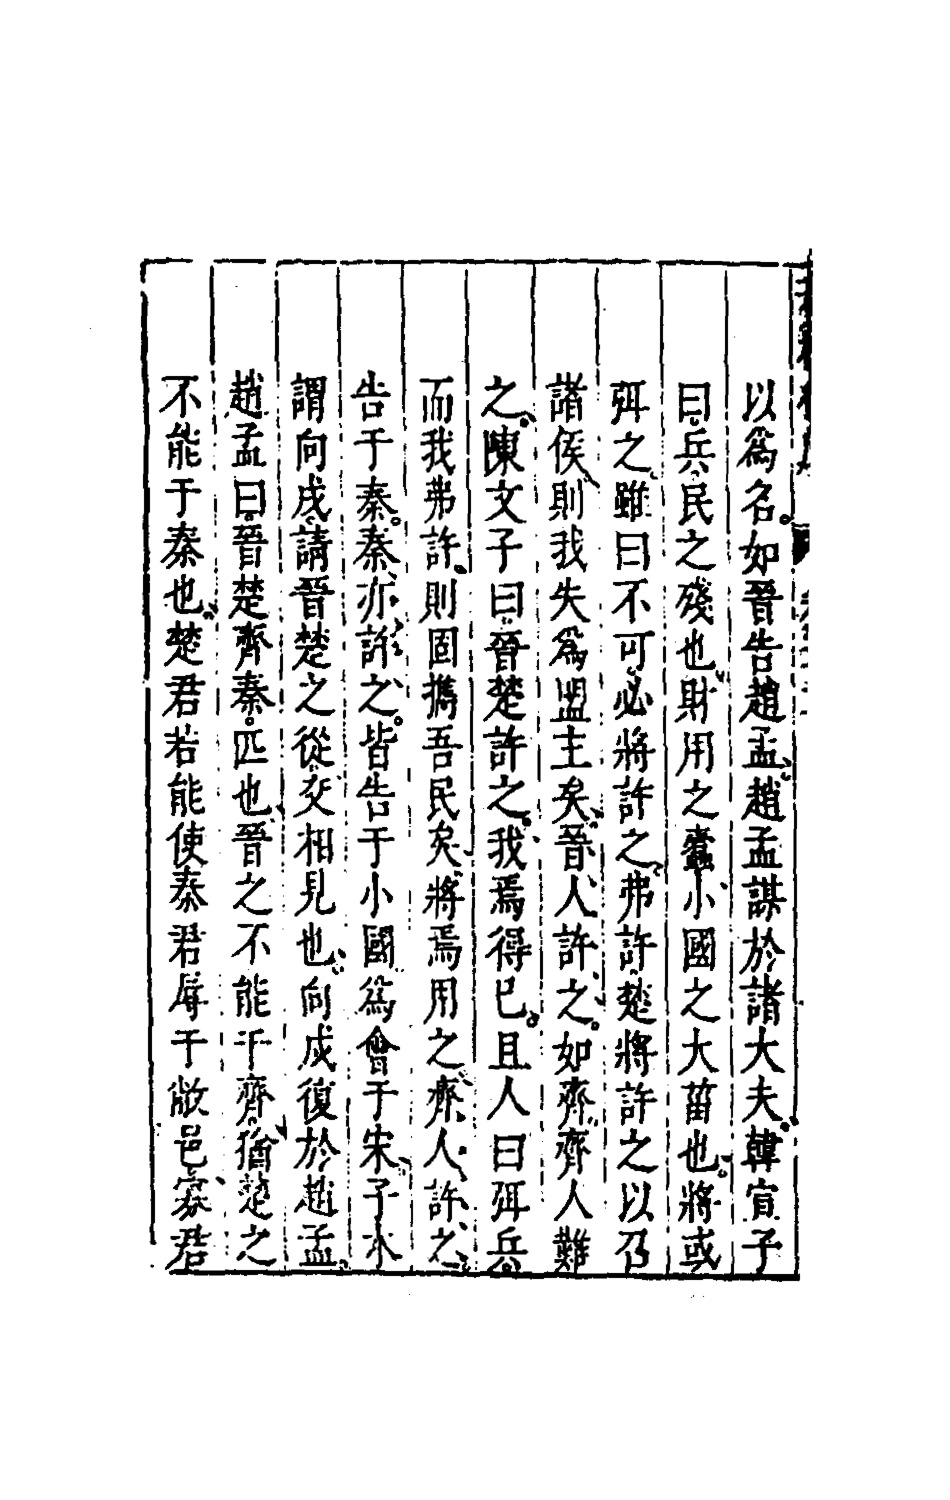 以爲名如晉告趙孟趙孟謀於諸大夫韓宣子
曰兵民之殘也財用之蠹小國之大菑也將或
弭之雖曰不可必將許之弗許楚將許之以召
諸侯則我失爲盟主矣晉人許之如齊齊人難
之陳文子曰晉楚許之我焉得已且人曰弭兵
而我弗許則固攜吾民矣將焉用之齊人許之
告于秦秦亦許之皆告于小國爲會于宋子木
謂向戌請晉楚之從交相見也向戌復於趙孟
趙孟曰晉楚齊秦匹也晉之不能于齊猶楚之
不能于秦也楚君若能使秦君辱于敝邑寡君